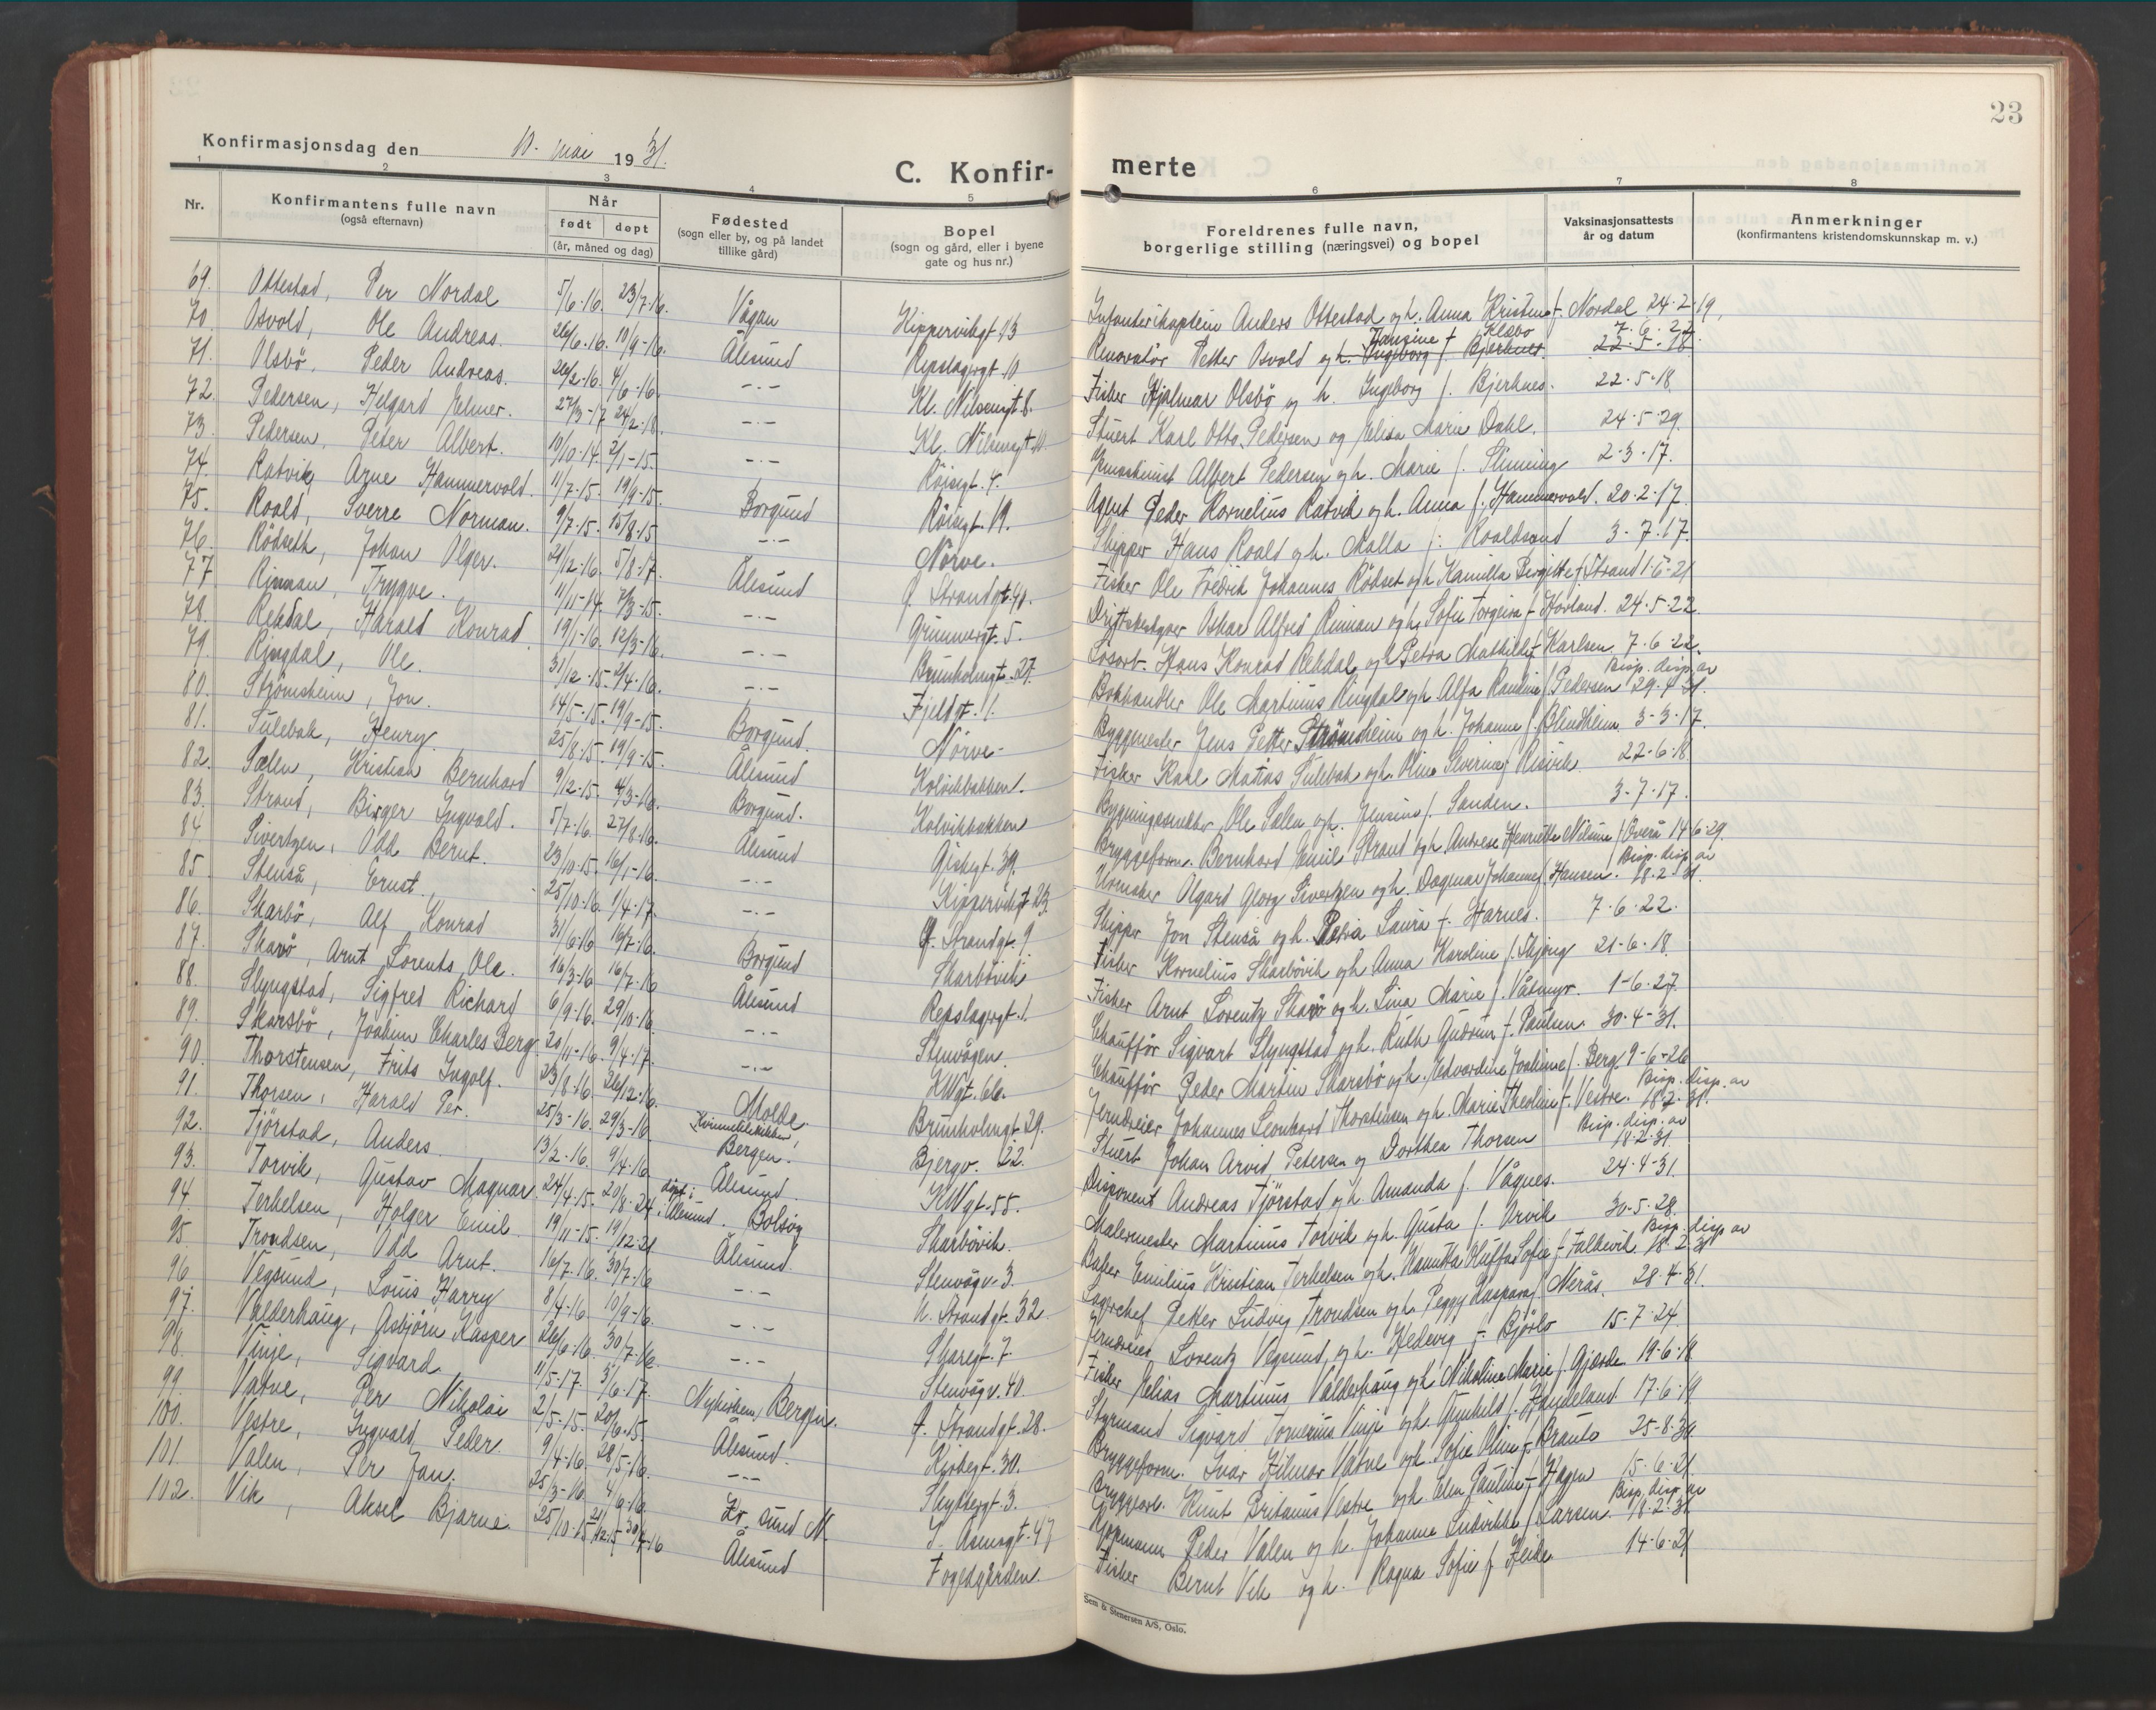 23
Konfirmasjonsdag den 10. mai 1931.
C. Konfir-
merte
1 2 3 4 5 6 7 8
Nr.
Konfirmantens fulle navn
(også efternavn)
Når
født døpt
(år, måned og dag)
Fødested
(sogn eller by, og på landet
tillike gård)
Bopel
(sogn og gård, eller i byene
gate og hus nr.)
Foreldrenes fulle navn,
borgerlige stilling (næringsvei) og bopel
Vaksinasjonsattests
år og datum
Anmerkninger
(konfirmantens kristendomskunnskap m. v.)
69. Ottestad, Per Nordal 5/6-16. 23/7-16. Vågan Kippervikgt. 43 Infanterikaptein Anders Ottestad og h. Anna Kristine f. Nordal 24-2-19.
70. Osvold, Ole Andreas. 26/6-16. 10/9-16. Ålesund Repslagergt. 10 Renovatör Petter Osvold og h. Ingeborg f. Bjerknes. Hansine f. Klesbö 22-5-18 7-6-22.
71. Olsbö, Peder Andreas. 26/2-16. 4/6-16. -.- Kl. Nilsengt. 8. Fisker Hjalmar Olsbö og h. Ingeborg f. Bjerknes. 22-5-18.
72. Pedersen, Helgard Helmer. 27/3-17 24/2-18. -.- Kl. Nilsensgt. 10. Stuert Karl Otto Pedersen og Elisa Marie Dahl. 24-5-29.
73. Pedersen, Peter Albert. 10/10-14. 2/1-15. -.- Röisegt. 4. Albert Pedersen og h. Marie f. Slinning 2-3-17.
74. Ratvik, Arne Hammervold. 11/7-15. 19/9-15. Borgund Röisegt. 19. Agent Peder Kornelius Ratvik og h. Anna f. Hammervold. 20-2-17.
75. Roald, Sverre Norman. 9/7-15. 15/8-15 -.- Nörve. Skipper Hans Roald og h. Malla f. Roaldsand 3-7-17.
76. Rödseth, Johan Olger. 21/12-16. 5/8-17. Ålesund f. Strandgt. 40. Fisker Ole Fredrik Johannes Rödset og h. Kamilla Bergitte f. Strand 1-6-21
77 Rinnan, Trygve. 11/11-14. 7/3-15. -.- Grimmergt. 5. Driftsbestyrer Oskar Alfred Rinnan og h. Sofie Torgeira f. Hovland. 24-5-22.
78. Rekdal, Harald Konrad. 19/1-16. 12/3-16. -.- Brunholmgt. 27. Hans Konrad Rekdal og h. Petra Mathilde f. Karlsen 7-6-22.
79. Ringdal, Ole. 31/12-15. 2/4-16. -.- Fjeldgt. 1. Bokhandler Ole Martinius Ringdal og h. Alfa Randine f. Pedersen Bisp. disp. av 29-4-31.
80. Strömsheim, Jon. 14/5-15. 19/9-15. Borgund. Nörve- Byggmester Jens Petter Strömsheim og h. Johanne f. Blindheim 3-3-17.
81. Sulebak, Henry. 25/8-15. 19/9-15. Ålesund Kolvikbakken. Fisker Karl Matias Sulebak og h. Oline Severine f. Risvik 22-6-18
82. Sælen, Kristian Bernhard 9/12-15. 4/3-16. Borgund. Kolvikbakken Bygningssnekker Ole Sælen og h. Jensine f. Sanden. 3-7-17.
83. Strand, Birger Ingvald. 5/7-16. 27/8-16. Ålesund Giskegt. 39. Bryggeform. Bernhard Emil Strand og h. Andrese Henriette Nilsine f. Överå 14-6-29.
84 Sivertzen, Odd Bernt. 23/10-15. 16/1-16. -.- Kippervikgt. 23. Urmaker Algard Georg Sivertzen og h. Dagmar Johanne f. Hansen. Bisp. disp. av 18-2-31.
85. Stenså, Ernst. 25/10-16. 1/4-17. -.- f. Strandgt. 9. Skipper Jon Stenså og h. Petra Laura f. Harnes. 7-6-22.
86. Skarbö, Alf Konrad 3/6-16 16/7-16. Borgund Skarbövik Fisker Kornelius Skarbövik og h. Anna Karoline f. Skjong 21-6-18.
87. Skarö, Arnt Lorents Ole. 16/3-16 16/7-16 Ålesund Repslagergt. 1. Fisker Arnt Lorentz Skarö og h. Lina Marie f. Våtmyr. 1-6-27.
88. Slyngstad, Sigfred Richard 6/9-16. 29/10-16. -.- Stenvågen. Chaufför Sigvart Slyngstad og h. Ruth Gudrun f. Paulsen. 30-4-31.
89. Skarsbö, Joakim Charles Berg. 20/11-16. 9/4-17. -.- KWgt. 66. Chaufför Peder Martin Skarsbö og h. Edvardine Joakime f. Berg 9-6-26
90. Thorstensen, Frits Ingolf. 23/8-16. 26/12-16. Molde. Brunholmgt 29. Jerndreier Johannes Leonhard Thorstensen og h. Marie Theoline f. Vestre. Bisp. disp. av 18-2-31.
91. Thorsen, Harald Per. 25/3-16. 29/3-16 Kvinneklinikken, Bergen. Bjergv. 22. Stuert Johan Arvid Petersen og Dorthea Thorsen Bisp. disp. av 18-2-31.
92. Tjörstad, Anders. 13/2-16. 9/4-16 Ålesund. KWgt. 55. Disponent Andreas Tjörstad og h. Amanda f. Vågnes. 24-4-31.
93. Torvik, Gustav Magnar. 24/4-15. 20/8-24. döpt i Ålesund. Bolsöy Skarbövik. Malermester Martinius Torvik og h. Gusta f. Arvik 30-5-28.
94. Terkelsen, Holger Emil. 19/11-15. 19/12-21 Ålesund. Stenvågv. 3. Baker Emilius Kristian Terkelsen og h. Sofie f. Falkevik Bisp. disp. av 18-2-31
95. Trondsen, Odd Arnt. 16/7-16. 30/7-16 -.- N. Strandgt. 32. Lagerchef Petter Ludvig Trondsen og h. Peggy Kaspara f. Nerås. 28-4-31.
96. Vegsund, Louis Harry 8/4-16. 10/9-16. -.- Skaregt. 7. Lorentz Vegsund, og h. Hedevig f. Bjørlo 15-7-24.
97. Valderhaug, Asbjörn Kasper 26/6-16. 30/7-16. -.- Stenvågv. 40. Fisker Elias Martinus Valderhaug og h. Nikoline Marie f. Gjærde 19-6-18
98. Vinje, Sigvard 11/5-17. 3/6-17. Nykirken, Bergen. f. Strandgt. 28. Styrmand Sigvard Vinje og h. Gunhild f. Haydeland 17-6-19
99. Vatne, Per Nikolai 2/5-15. 20/6-15 Ålesund. Kirkegt. 30. Bryggeform. Ivar Hilmar Vatne og h. Sofie Oline f. Brauto 25-8-30
100. Vestre, Ingvald Peder. 9/4-16. 28/5-16. -.- Skyttergt. 3. Bryggearb. Knut Britanus Vestre og h. Elen Pauline f. Hagen 15-6-21.
101. Valen, Per Jan. 25/3-16. 4/6-16. Kr. sund N. I. Aasensgt. 47 Kjøpmann Peder Valen og h. Johanne Ludvikke f. Larsen. Bisp. disp. av 18-2-31
102. Vik, Aksel Bjarne 25/10-15 21/12-15 30/4-16 Ålesund Fogedgården. Fisker Bernt Vik og h. Ragna Sofie f. Heide 14-6-21
Sem & Stenersen A/S, Oslo.